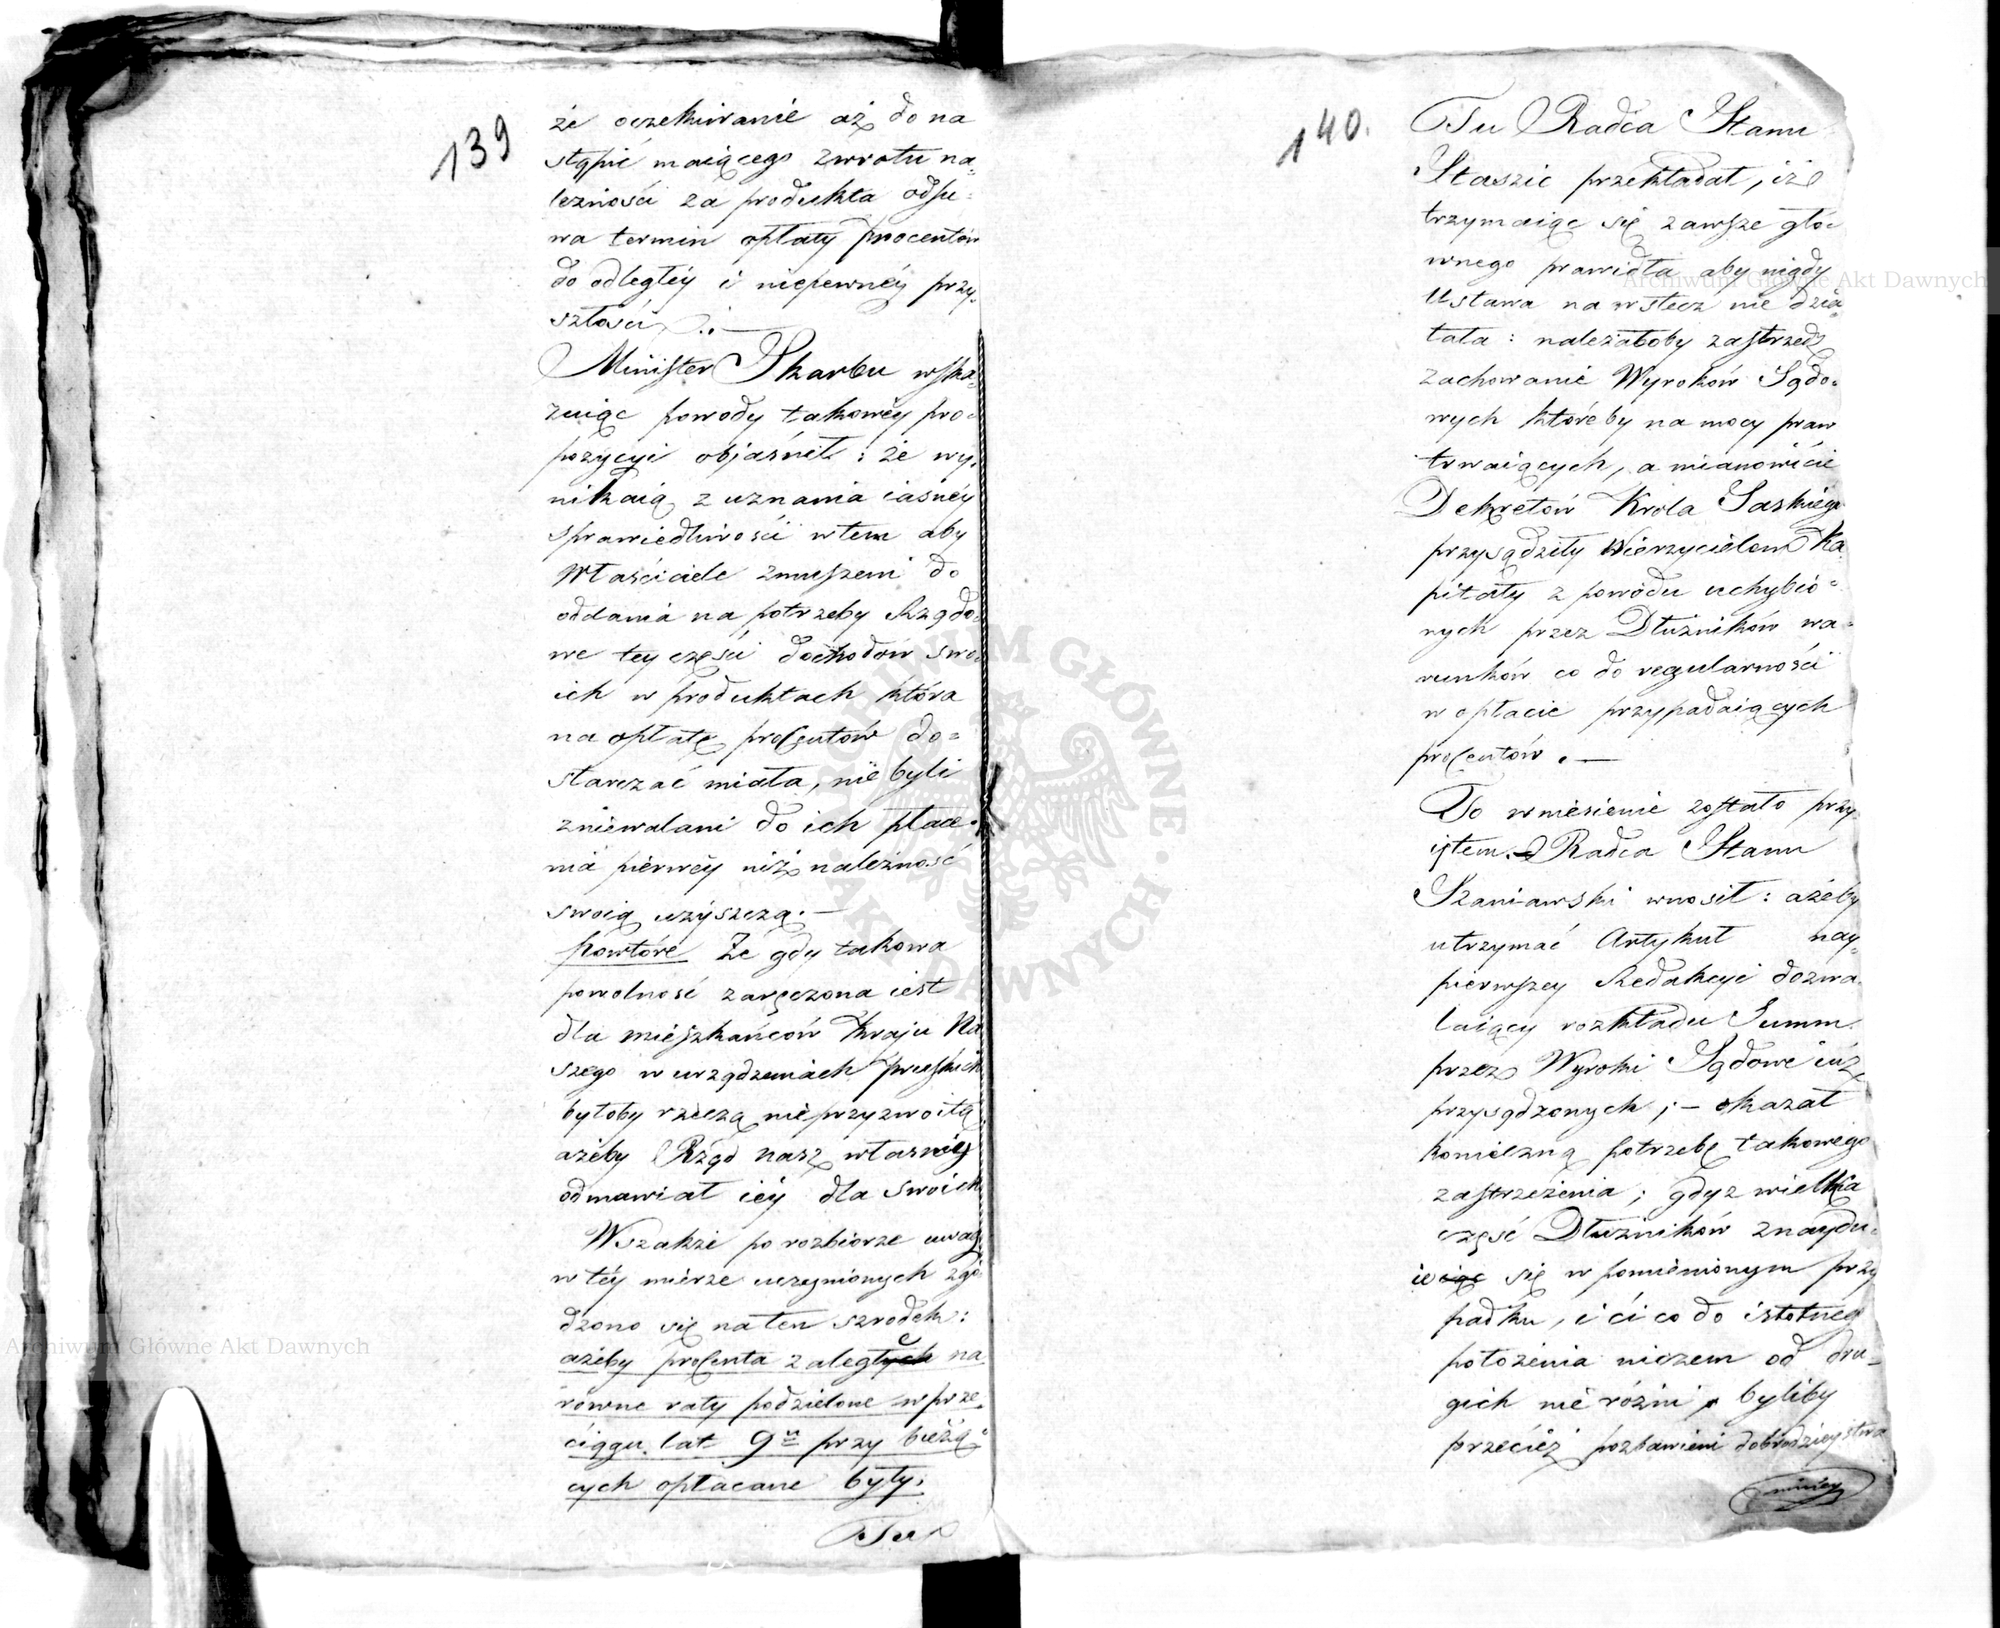 139
że oczekiwanie aż do na
stąpić maiącego zwrotu na-
leżności za produkta odsu-
wa termin opłaty procentów
do odległéy i niepewnéy przy-
szłości.
Minister Skarbu wska-
zuiąc powody takowéy pro-
pozycyi objaśnił: że wy-
nikaią z uznania iasnéy
sprawiedliwości w tem aby
Właściciele zmuszeni do
oddania na potrzeby Rządo-
we téy części dochodów swo-
ich w produktach która
na opłatę procentów do-
starczać miała, nie byli
zniewalani do ich płace-
nia pierwéy niż należność
swoią uzyszczą.—
Powtóre Że gdy takowa
powolność zaręczona iest
dla mieszkańców Kraju Na
szego w urządzeniach pruskich
byłoby rzeczą nieprzyzwoitą
ażeby Rząd nasz własny
odmawiał iéy dla swoich
Wszakże po rozbiorze uwag
w téy mierze uczynionych zgo
dzono się na ten szrodek:
ażeby procenta zaległe na
równe raty podzielone w prze-
ciągu lat 9u przy bieżą-
cych opłacane były.
Tu
140.
Tu Radca Stanu
Staszic przekładał, iż
trzymaiąc się zawsze głó-
wnego prawidła aby nigdy
Ustawa na wstecz nie dzia-
łała: należałoby zastrzedz
zachowanie Wyroków Sądo-
wych któreby na mocy praw
trwaiących, a mianowicie
Dekretów Króla Saskiego
przysądziły Wierzycielom Ka
pitały z powodu uchybio-
nych przez Dłużników wa-
runków co do regularności
w opłacie przypadaiących
procentów.—
To wniesienie zostało przy
iętem.— Radca Stanu
Szaniawski wnosił: ażeby
utrzymać Artykuł nay-
pierwszey Redakcyi dozwa-
laiący rozkładu Summ
przez Wyroki Sądowe iuż
przysądzonych;— okazał
konieczną potrzebę takowego
zastrzeżenia; gdyż wielka
część Dłużników znaydu-
ie się w pomienionym przy
padku, i ci co do istotnego
położenia niczem od dru-
gich nie różni, byliby
przecież pozbawieni dobrodzieystwa
Archiwum Główne Akt Dawnych
Archiwum Główne Akt Dawnych
ARCHIWUM GŁÓWNE AKT DAWNYCH